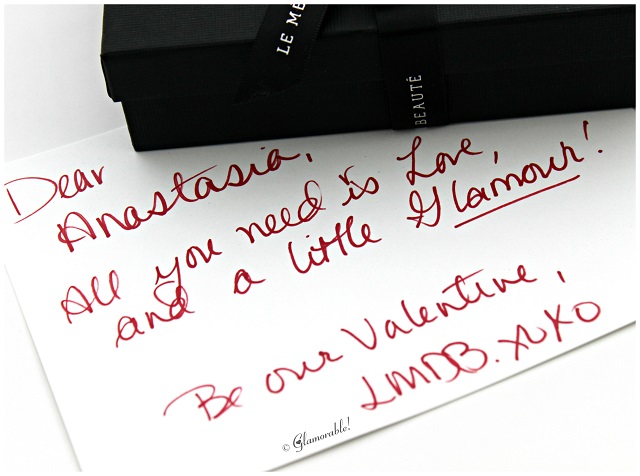 LE ME
BEAUTÉ
Dear
Anastasia,
All you need is Love,
and a little Glamour!
Be our Valentine,
LMDB. XOXO
© Glamorable!